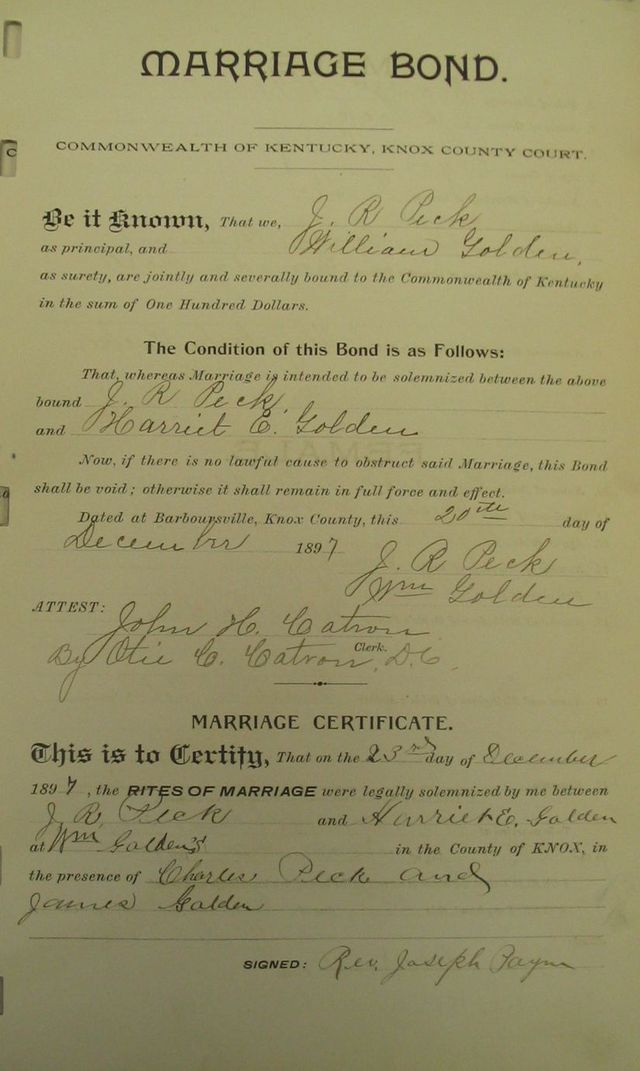 MARRIAGE BOND.
COMMONWEALTH OF KENTUCKY, KNOX COUNTY COURT.
Be it Known, That we, J. R Peck
as principal, and William Golden,
as surety, are jointly and severally bound to the Commonwealth of Kentucky
in the sum of One Hundred Dollars.
The Condition of this Bond is as Follows:
That, whereas Marriage is intended to be solemnized between the above
bound J. R Peck,
and Harriet E. Golden
Now, if there is no lawful cause to obstruct said Marriage, this Bond
shall be void; otherwise it shall remain in full force and effect.
Dated at Barboursville, Knox County, this 20th day of
December 1897
J. R Peck
Wm Golden
ATTEST:
John H. Catron
Clerk.
By Otie C. Catron, D.C.
MARRIAGE CERTIFICATE.
This is to Certify, That on the 23rd day of December
1897, the RITES OF MARRIAGE were legally solemnized by me between
J. R. Peck and Harriet E. Golden
at Wm Golden's in the County of KNOX, in
the presence of Charles Peck and
James Golden
SIGNED: Rev. Joseph Payne